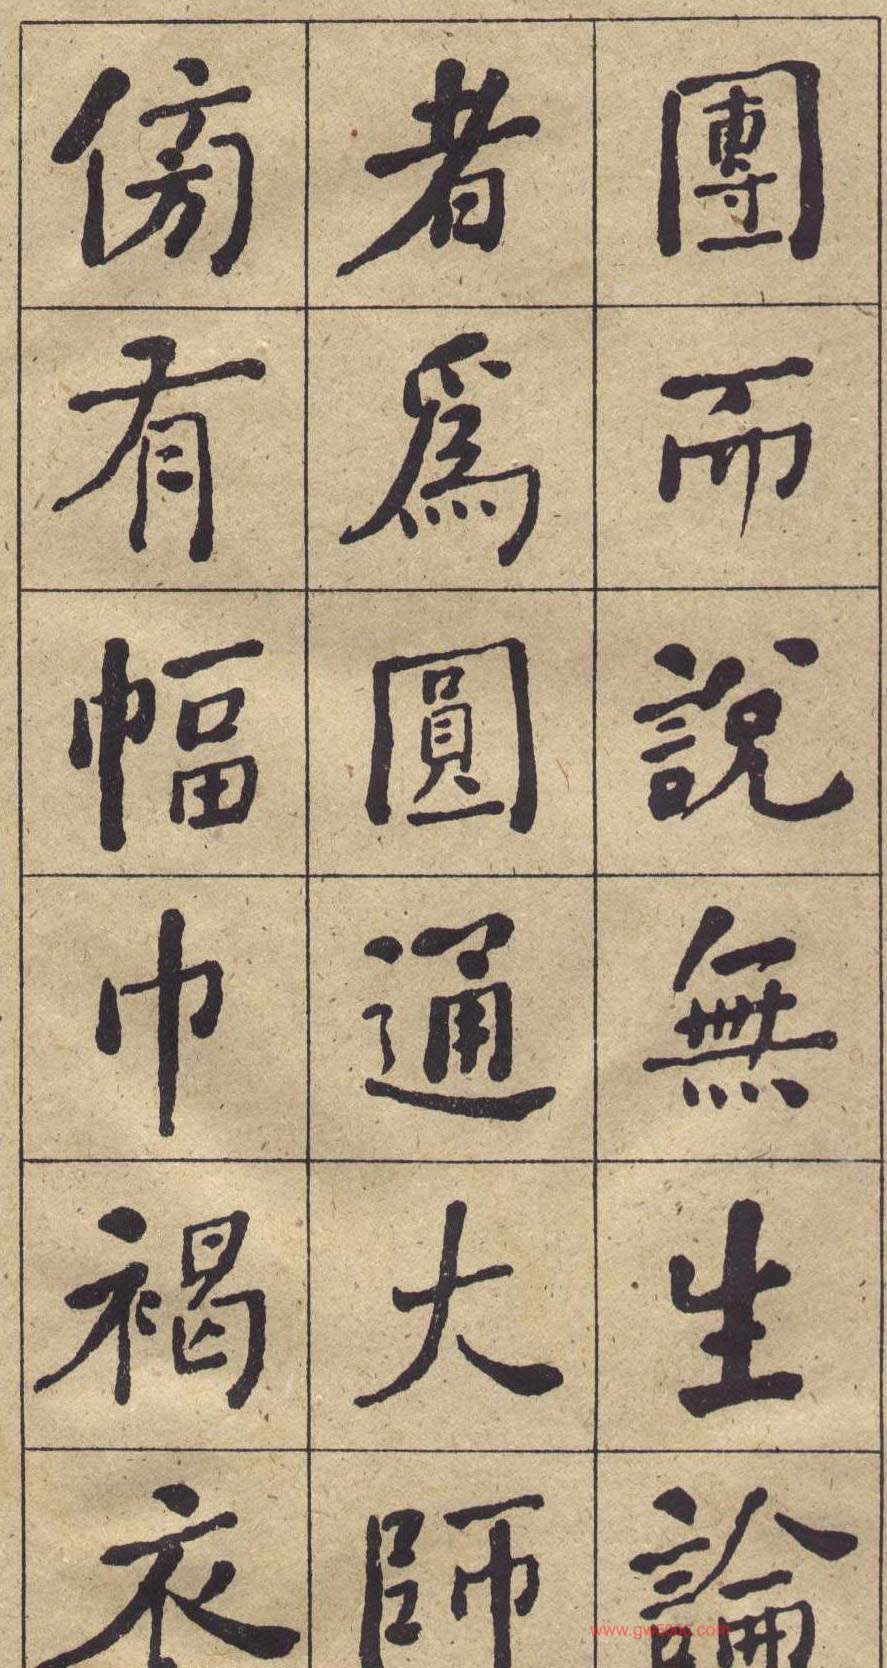 團而說無生論
者為圓通大師
傍有幅巾褐衣